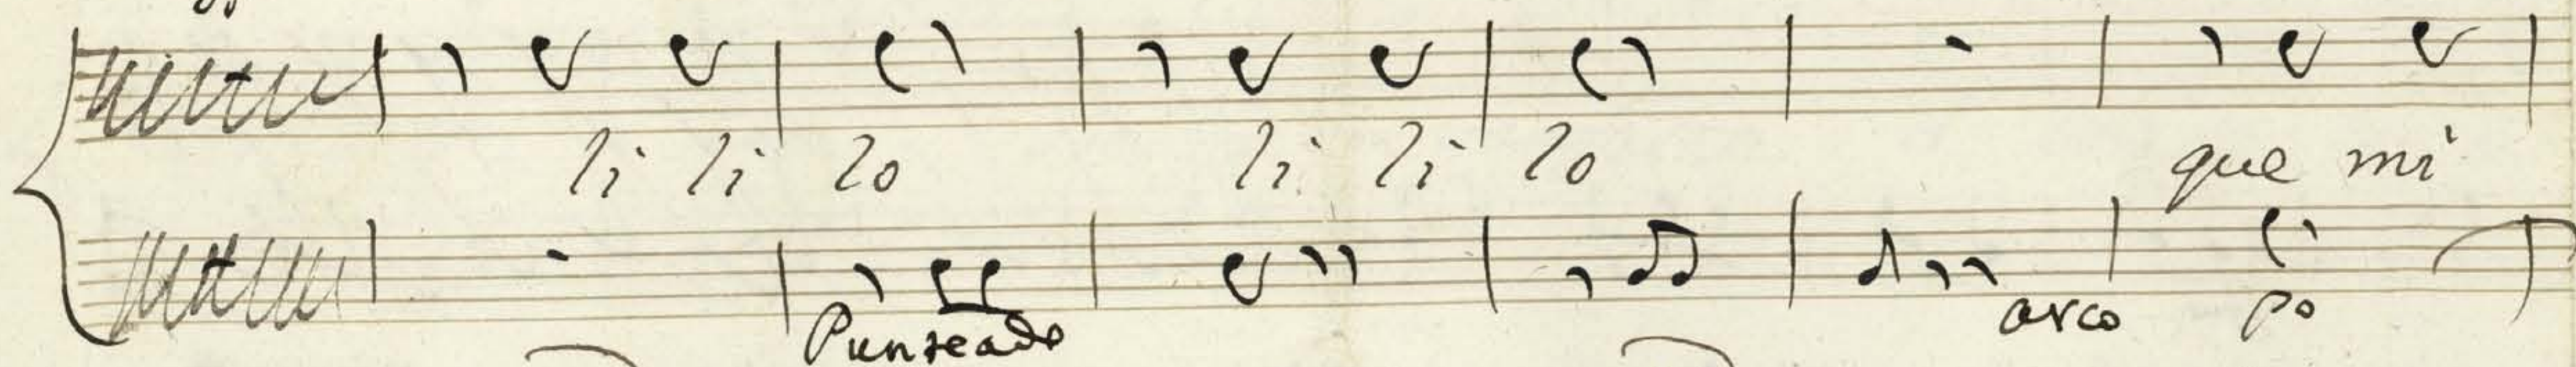 li li lo li li lo que mi
Punteado arco po